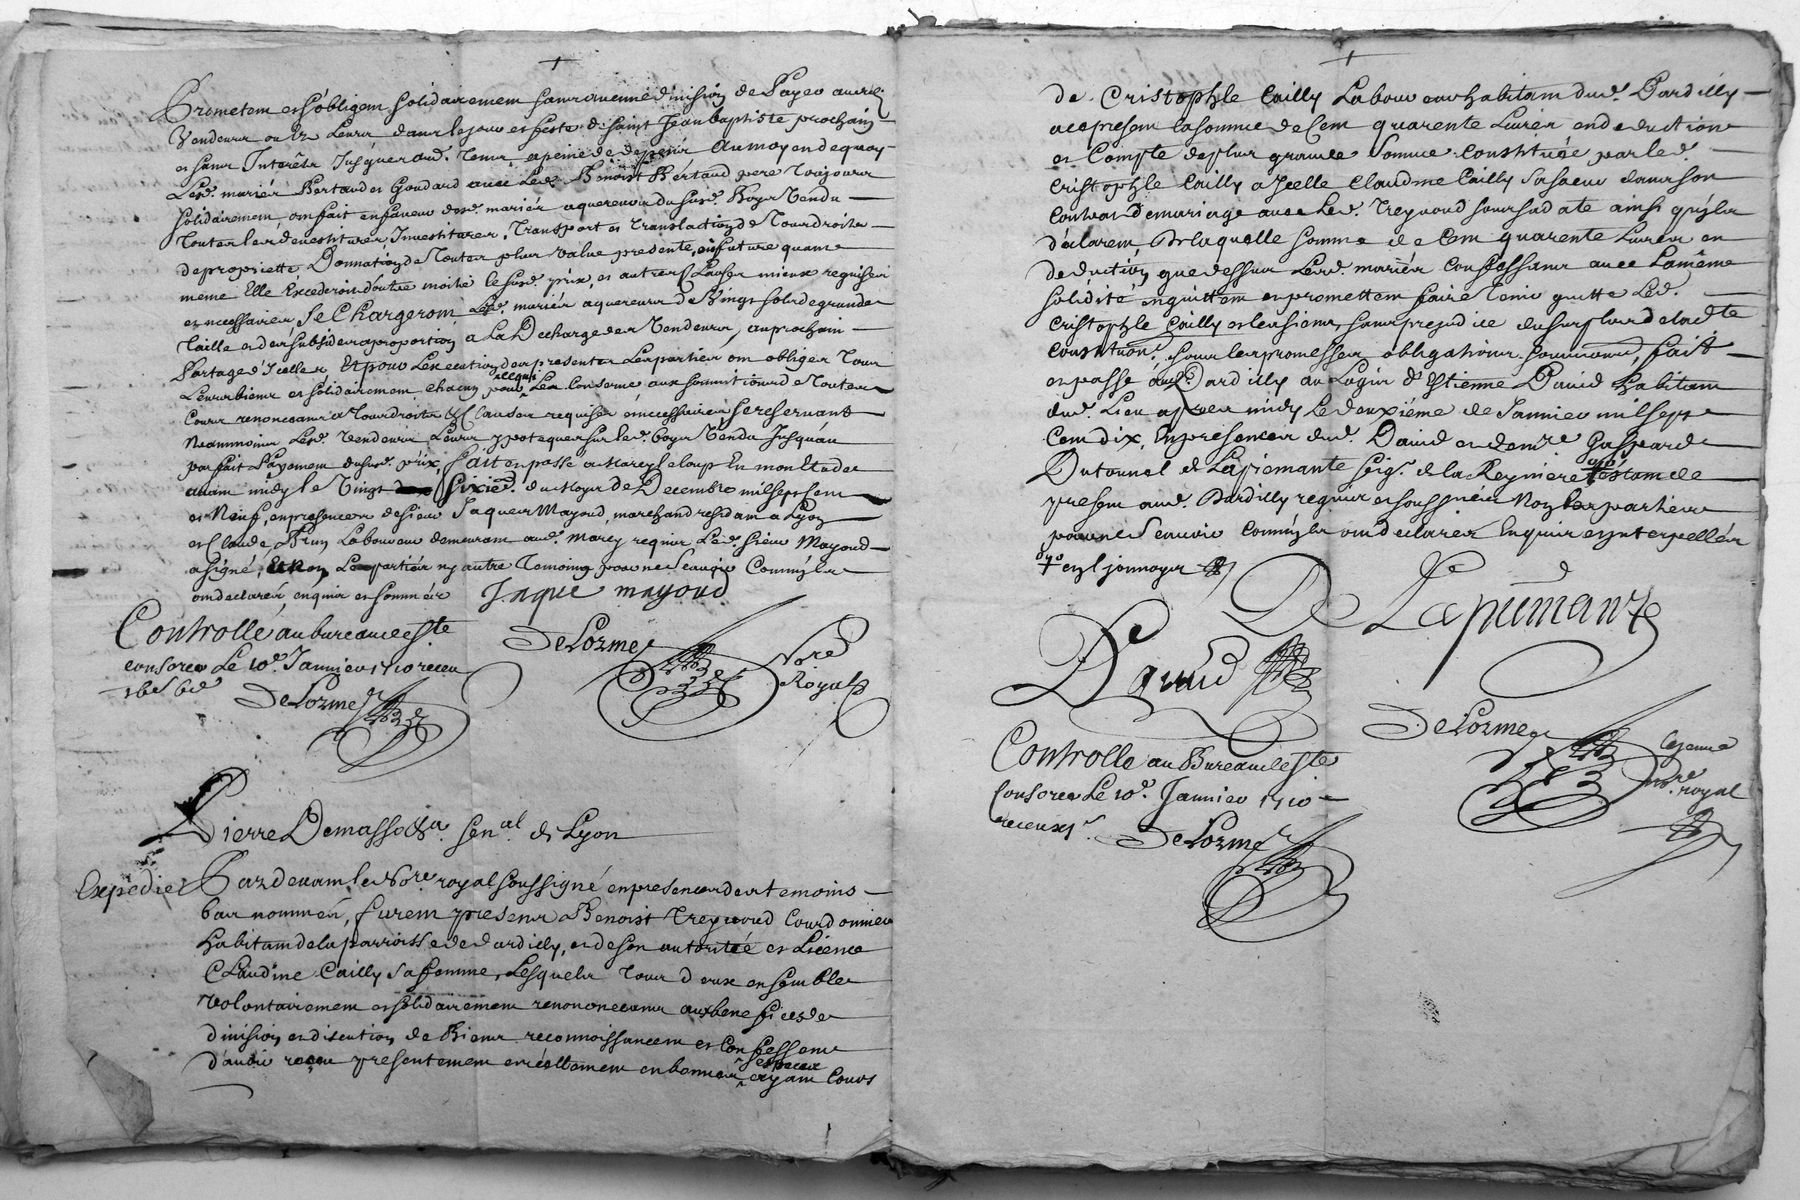 Prometem et s'obligem solidairemem sans aucunne division de Payer auxd.
Vendeurs ou és Leurs dans le jour et feste de saint Jean baptiste prochain
et sans Interêts Jusques aud. Tems, a peine de depens Au moyen de quoy
Lesd. mariés Bertaud et Goudard avec Led. Benoist Bertaud pere Toujours
Solidairemem om fait en faveur desd. mariés aquereurs du susd. Boyer Vendu
Toutes les devestitures, Investitures, Transport et Translaction de Tous droits
de proprietté Donnation de Toutes plus value presente, ou future quam
meme Elle Excederoit d'outre moitié le susd. prix, et autres Clauses mieux requises
et necessaires Se Chargerom Lesd. mariés aquereurs de Vingt sols de grande
Taille et des subsides a proportion a La Decharge des Vendeurs, au prochain
Partage d'Icelles Et pour L'execution des presentes Les partiés om obligés Tous
Leurs biens et solidairemem chacun pour Les Concerne aux soumitions de Toutes
Cours renonceans a Tous droits & Clauses requises & necessaires se reservans
Neammoins Lesd. Vendeurs Leurs ypoteques sur led. Boyer Vendu Jusqu'au
parfait Payemem dusd. prix, fait et passé a Marcy le loup En mon Etude
avam midy le Vingt sixie. du Moys de Decembre mil sept Cem
et Neuf, en presence de sieur Jaques Mayoud, marchand residam a Lyon
et Claude Brun Laboureur demeuram aud. Marcy requis Led. sieur Mayoud
a signé, Et Non Les partiés ny autre Temoing pour ne Scavoir Comm'ils
om declarés, enquis et sommés Jaque mayoud
Controllé au bureau de Ste
Consorce Le 10e. Janvier 1710 receu
DeLorme Nore. Royal
DeLorme
Pierre Demasso &a. Senal. de Lyon
Expedié
Pardevam le Nore. royal soussigné en presence des temoins
bas nommés, furem presens Benoist Treynoud Courdonnier
habitam de la parroisse de Dardilly, et de son autorité et Licence
Claudine Cailly sa femme, Lesquels Tous deux ensembles
volontairemem et solidairemem renonceans aux benefices de
division et discution de Biens reconnoissancem et Confessem
d'avoir receu presentemem et reéllemem en bonnes especes ayam Cours
de Cristophle Cailly Laboureur habitam dud. Dardilly
acepresem la somme de Cem quarente Livres en deduction
et Compte de plus grande Somme Constituée par led.
Cristophle Cailly a Icelle Claudine Cailly sa soeur dans son
Contrat de mariage avec Led. Treynoud sous sa date ainsi qu'ils
declarem De laquelle somme de Cem quarente Livres en
deduction que dessus Lesd. mariés Confessans avec La même
solidité en quittem et promettem faire Tenir quitte Led.
Cristophle Cailly et les siens, sans prejudice du surplus de ladte
Constituon. sous les promesses obligations soumions, fait
et passé aud. Dardilly au Logis d'Estienne David habitam
dud. Lieu apres midy Le deuxiéme de Janvier mil sept
Cem dix, En presences dud. David et de mre. Gaspard
Dutournel de Lapiemante seigr. de la Reyniere estam de
presem aud. Dardilly requis et soussignés Non les parties
pour ne Scavoir Comm'ils om declarés Enquis et ynterpellés
De Lapimante
D gavid
Controllé au Bureau de Ste
Consorce Le 10e. Janvier 1710
DeLorme
nore. royal
DeLorme